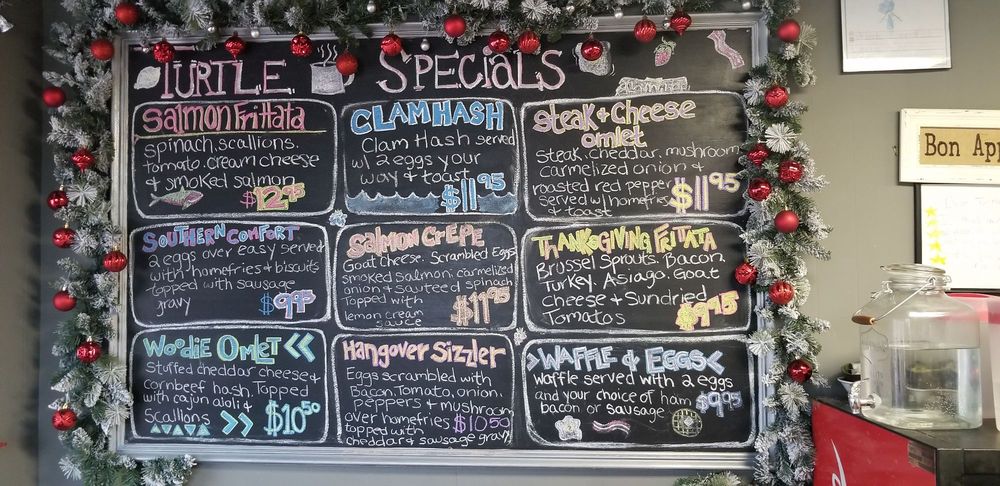 TURTLE SPECIALS
Salmon Frittata
spinach, scallions,
tomato, cream cheese
& smoked salmon
$12.95
CLAM HASH
Clam Hash served
w/ 2 eggs your
way & toast
$11.95
Steak & Cheese
Omlet
steak, cheddar, mushroom
carmelized onion &
roasted red pepper
served w/ homefries
& toast
$11.95
SOUTHERN COMFORT
2 eggs over easy served
with homefries & biscuits
topped with sausage
gravy
$9.95
SALMON CREPE
Goat cheese, Scrambled Eggs
smoked salmon, carmelized
onion & sauteed spinach
Topped with
lemon cream
sauce
$11.95
THANKSGIVING FRITATA
Brussel Sprouts, Bacon,
Turkey, Asiago, Goat
Cheese & Sundried
Tomatos
$9.45
Woodie Omlet <<
Stuffed cheddar cheese &
cornbeef hash, Topped
with cajun aioli &
Scallions
>> $10.50
Hangover Sizzler
Eggs scrambled with
Bacon, Tomato, onion,
peppers & mushroom
over homefries $10.50
topped with
cheddar & sausage gravy
>WAFFLE & EGGS<
Waffle served with 2 eggs
and your choice of ham
bacon or sausage
$9.95
Bon App